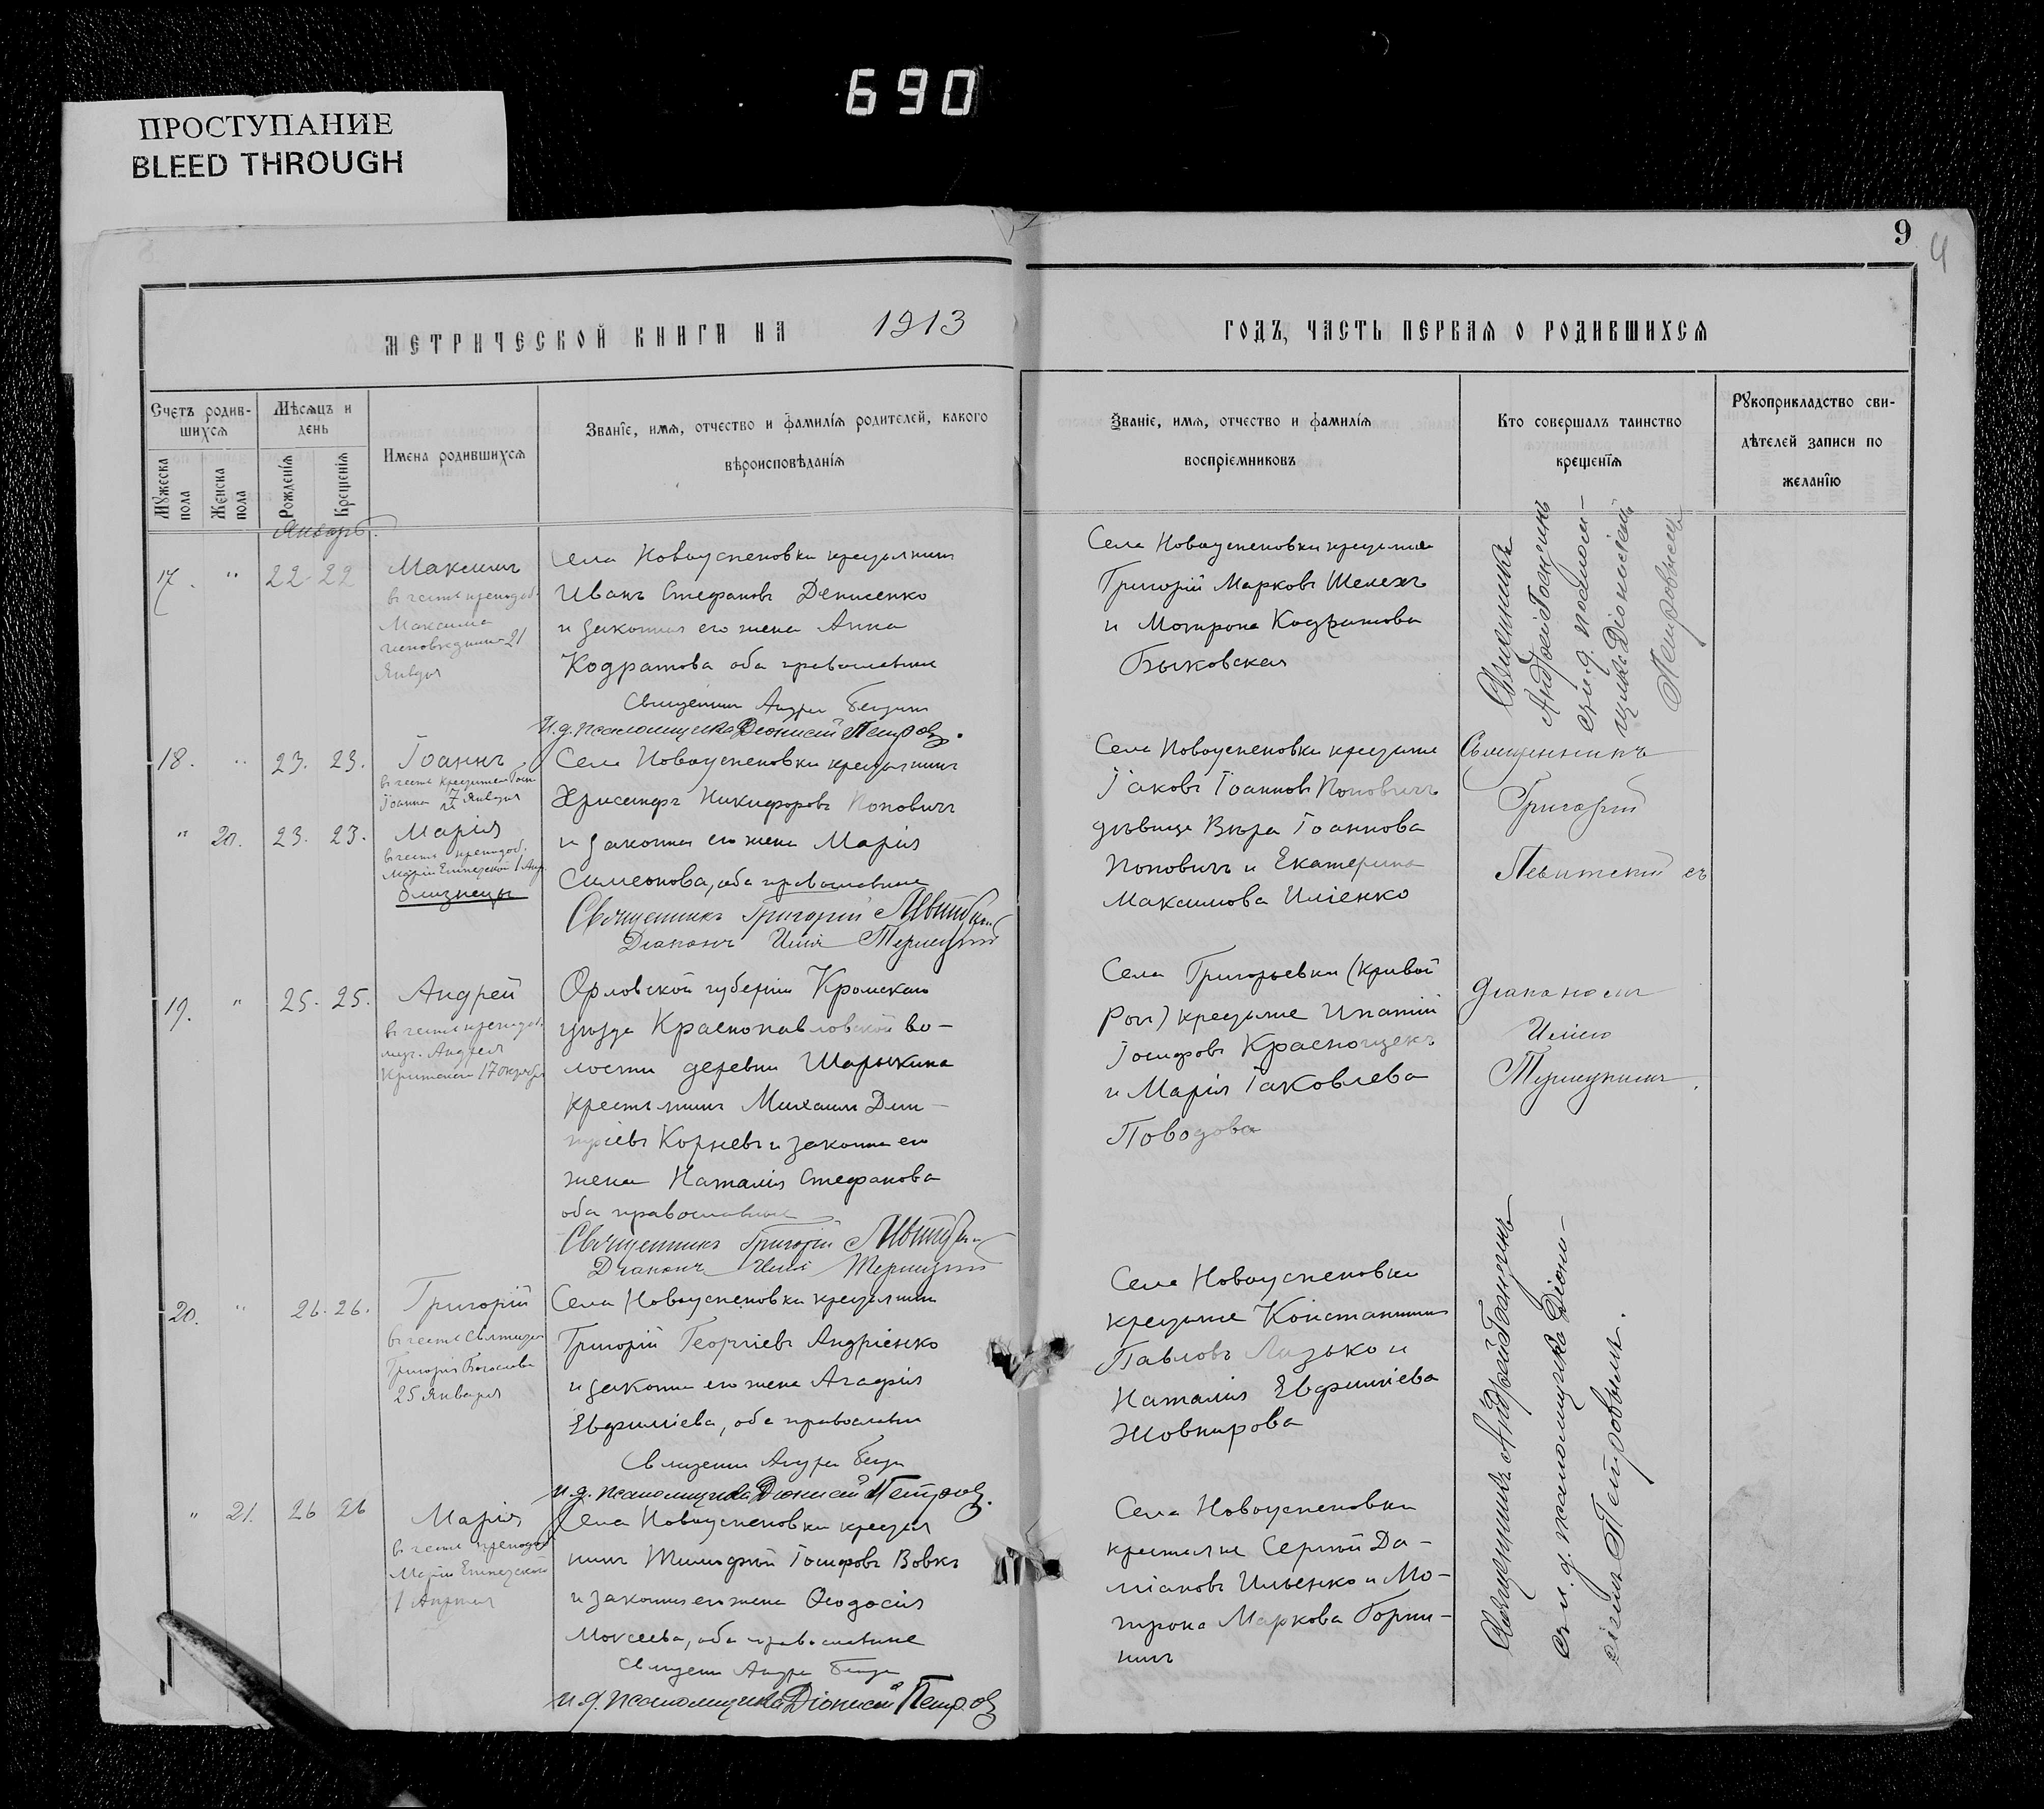 690
ПРОСТУПАНИЕ
BLEED THROUGH
9
4
МЕТРИЧЕСКОЙ КНИГИ НА 1913
ГОДЪ, ЧАСТЬ ПЕРВАЯ О РОДИВШИХСЯ
Счетъ родив-
шихся
Мужеска пола
Женска пола
Мѣсяцъ и
день
Рожденія
Крещенія
Имена родившихся
Званіе, имя, отчество и фамилія родителей, какого
вѣроисповѣданія
Званіе, имя, отчество и фамилія
воспріемниковъ
Кто совершалъ таинство
крещенія
Рукоприкладство сви-
дѣтелей записи по
желанію
Январь.
17. " 22 22
Максимъ
въ честь преподоб.
Максима
исповѣдника 21
Января
Села Новоуспеновки крестьянинъ
Иванъ Стефановъ Денисенко
и законная его жена Анна
Кодратова оба православные
Священникъ Андрей
И.д. псаломщика Діонисій Петров
Села Новоуспеновки крестьяне
Григорій Марковъ Шелехъ
и Мотрона Кодратова
Быковская
Священникъ
Андрей
съ и. д. псалом-
щика Діонисіемъ
18. " 23. 23.
Іоаннъ
въ честь Крестителя Госп.
Іоанна 7 Января
" 20. 23. 23.
Марія
въ честь преподоб.
Маріи Египетской 1 Апр.
близнецы
Села Новоуспеновки крестьянинъ
Хрисанфъ Никифоровъ Поповичъ
и законная его жена Марія
Симеонова, оба православные
Священникъ Григорій Левитскій
Діаконъ Илія
Села Новоуспеновки крестьяне
Іаковъ Іоанновъ Поповичъ
дѣвица Вѣра Іоаннова
Поповичъ и Екатерина
Максимова Иліенко
Священникъ
Григорій
Левитскій съ
19. " 25. 25.
Андрей
въ честь преподоб.
муч. Андрея
Критскаго 17 октября
Орловской губерніи Кромскаго
уѣзда Краснопавловской во-
лости деревни Шарыкина
крестьянинъ Михаилъ Дим-
тріевъ Корневъ и законная его
жена Наталія Стефанова
оба православные
Священникъ Григорій Левитскій
Діаконъ Илія
Села Григорьевки (Кривой
Рогъ) крестьяне Ипатій
Іосифовъ Краснощекъ
и Марія Іаковлева
Поводова
діакономъ
Иліею
20. " 26. 26.
Григорій
въ честь святителя
Григорія Богослова
25 Января
Села Новоуспеновки крестьянинъ
Григорій Георгіевъ Андріенко
и законная его жена Агафія
Евфиміева, оба православные
Священникъ Андрей
И.д. псаломщика Діонисій Петров.
Села Новоуспеновки
крестьяне Константинъ
Павловъ Лизько и
Наталія Евфиміева
Жовнирова
" 21. 26 26
Марія
въ честь преподоб
Маріи Египетской
1 Апреля
Села Новоуспеновки крестья
нинъ Тимофей Іосифовъ Вовкъ
и законная его жена Ѳеодосія
Моисеева, оба православные
Священникъ Андрей
И.д. псаломщика Діонисій Петров
Села Новоуспеновки
крестьяне Сергій Да-
міановъ Ильенко и Мо-
трона Маркова
Священникъ Андрей
съ и.д. псаломщика Діони-
сіемъ